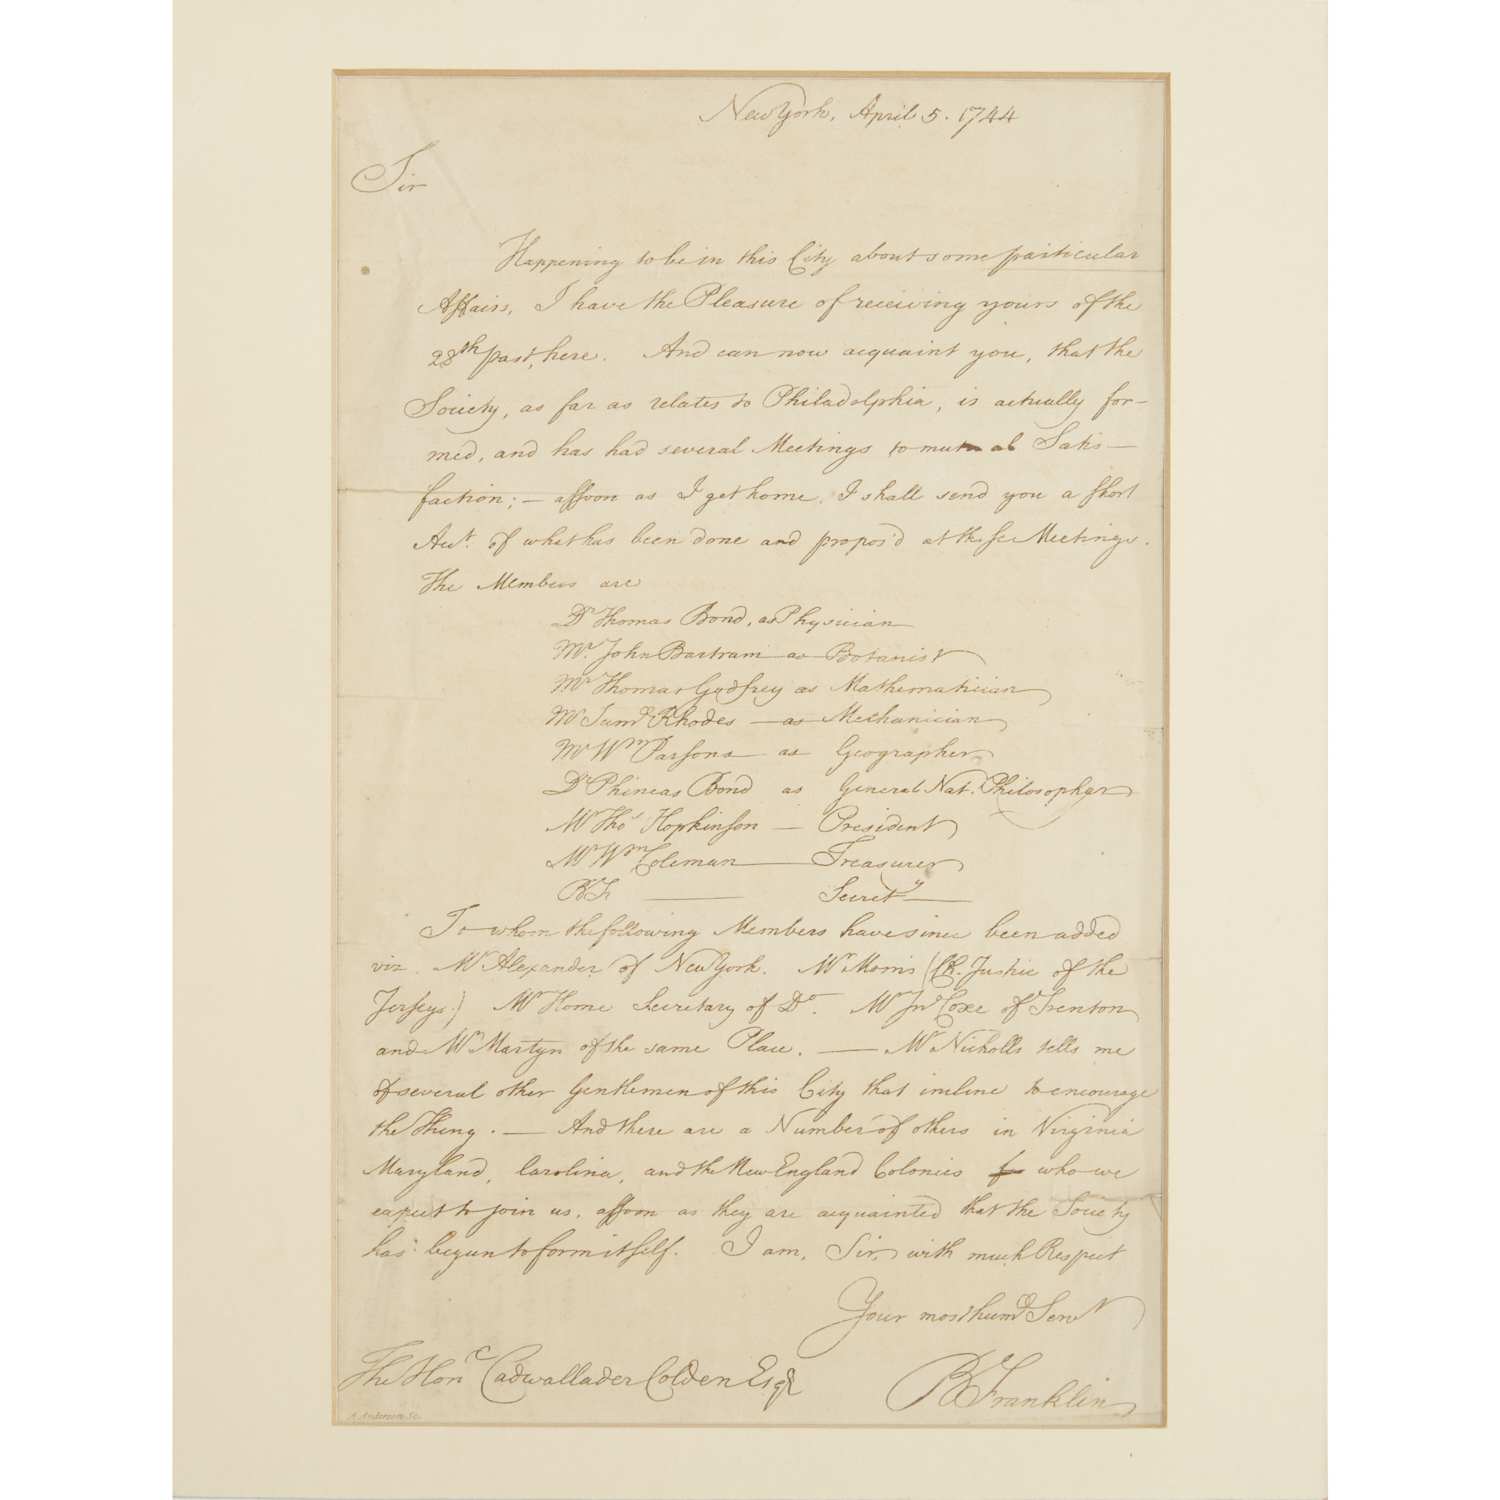 New York, April 5. 1744
Sir
Happening to be in this City about some particular
Affairs, I have the Pleasure of receiving yours of the
28th past, here. And can now acquaint you, that the
Society, as far as relates to Philadelphia, is actually for-
med, and has had several Meetings to mutual Satis-
faction; — assoon as I get home, I shall send you a short
Acct. of what has been done and propos'd at these Meetings.
The Members are
Dr Thomas Bond, as Physician
Mr. John Bartram as Botanist
Mr Thomas Godfrey as Mathematician
Mr Saml Rhodes — as Mechanician
Mr Wm Parsons as Geographer
Dr Phineas Bond as General Nat. Philosopher
Mr Thos Hopkinson — President
Mr Wm Coleman — Treasurer
BF — Secrety —
To whom the following Members have since been added
viz. Mr Alexander of New York. Mr Morris (Ch. Justice of the
Jerseys.) Mr Home Secretary of Do. Mr Jno Coxe of Trenton
and Mr Martyn of the same Place. — Mr Nicholls tells me
of several other Gentlemen of this City that incline to encourage
the Thing. — And there are a Number of others in Virginia
Maryland, Carolina, and the New England Colonies who we
expect to join us, assoon as they are acquainted that the Society
has begun to form itself. I am, Sir, with much Respect
Your most huml Servt
The Hone Cadwallader Colden Esqr
B Franklin
A Anderson Sc.